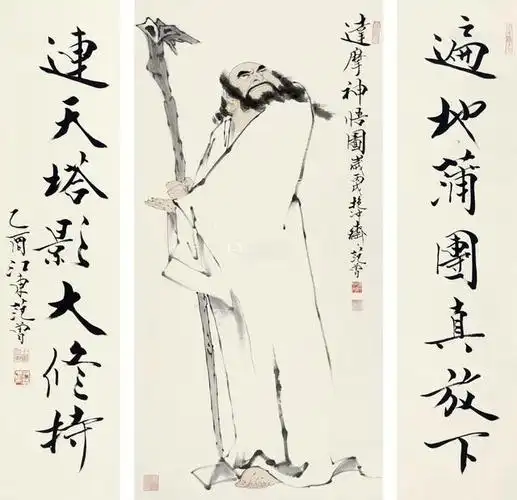 遍地蒲團真放下
達摩神悟圖歲抱沖齋范曾
連天塔影大修持
乙酉江東范曾